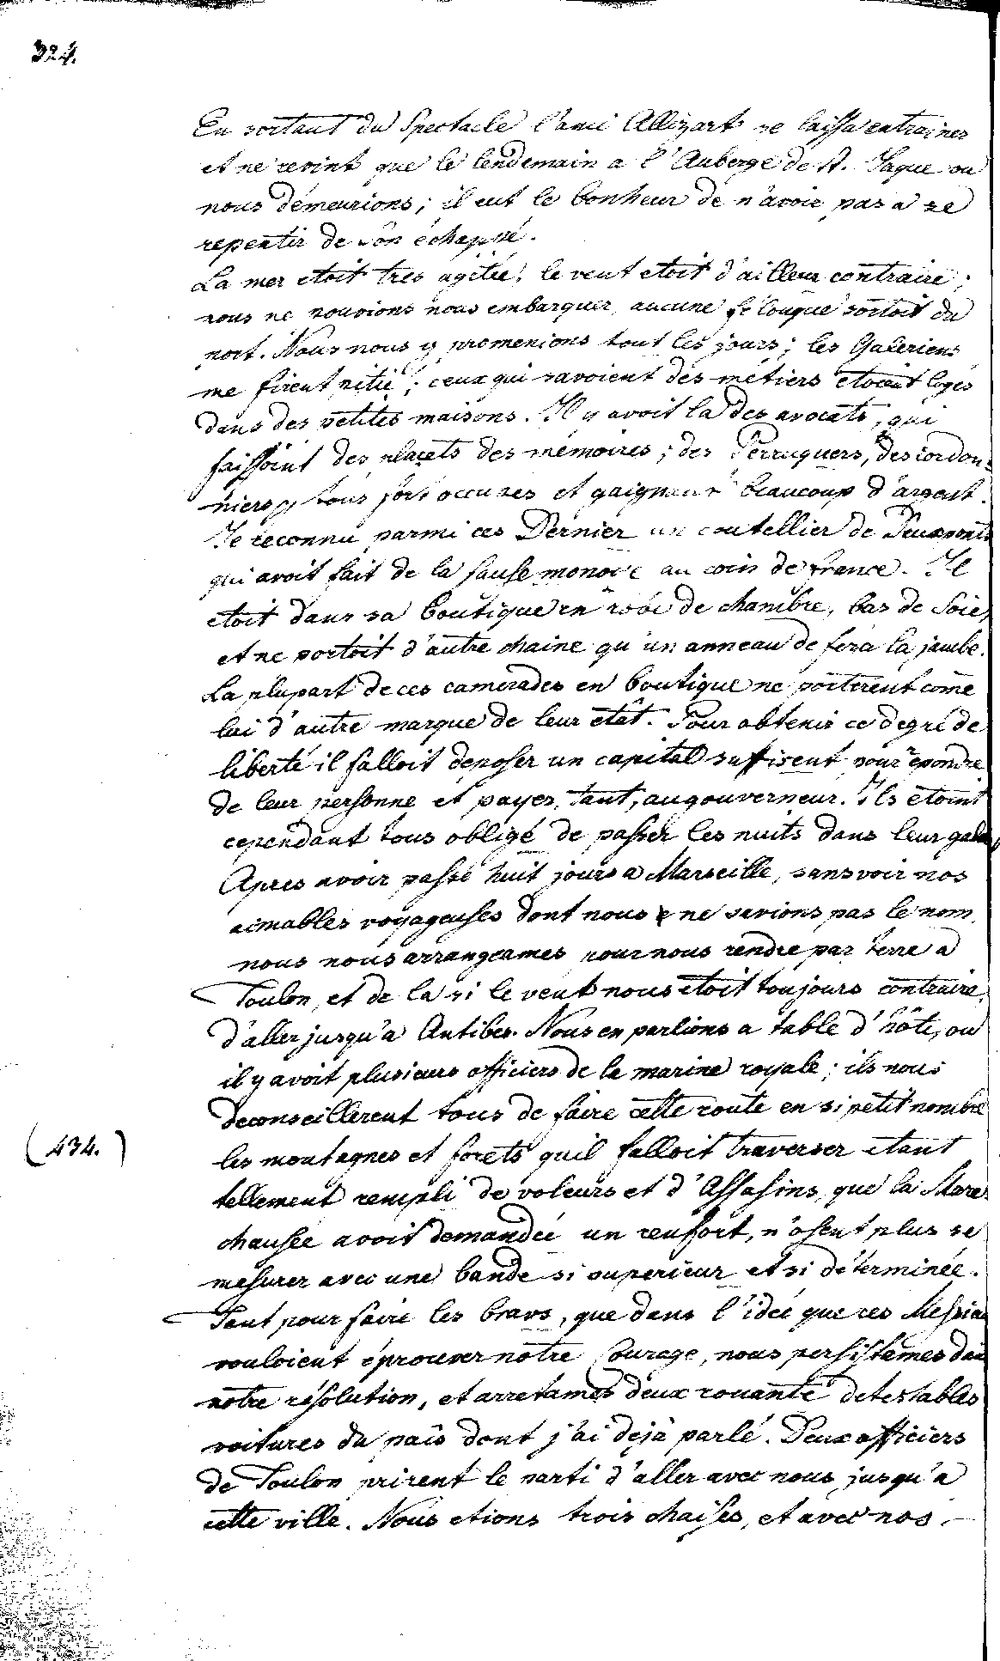 324.
En sortant du Spectacle l'ami Allizart se laissa entrainer
et ne revint que le lendemain a l'Auberge de St. Jaque ou
nous démeurions; il eut le bonheur de n'avoir pas a se
repentir de son échappé.
La mer etoit tres agitée, le vent etoit d'ailleur contraire;
nous ne pouvions nous embarquer, aucune félouque sortoit du
port. Nous nous y promenions tout les jours; les Galeriens
me firent pitié; ceux qui savoient des métiers etoient logés
dans des petites maisons. Il y avoit la des avocats, qui
faissoint des placets des mémoires; des Perruquers, des cordon-
niers, tous fort occupes et gaignant beaucoup d'argent.
Je reconnu parmi ces Dernier un coutellier de Deuxponts
qui avoit fait de la fause monoye au coin de france. Il
etoit dans sa boutique en robe de chambre, bas de Soie,
et ne portoit d'autre chaine qu'un anneau de fer a la jambe.
La plupart de ces camerades en boutique ne portèrent come
lui d'autre marque de leur etât. Pour obtenir ce degré de
liberté il falloit deposer un capital suffisent pour repondre
de leur personne et payer, tant, au gouverneur. Ils etoint
cependant tous obligé de passer les nuits dans leur galere,
Apres avoir passé huit jours a Marseille, sans voir nos
aimables voyageuses dont nous ne savions pas le nom,
nous nous arrangeames pour nous rendre par terre a
Toulon, et de la si le vent nous etoit toujours contraire,
d'aller jusqu'a Antibes. Nous en parlions a table d'hôte, ou
il y avoit plusieurs officiers de la marine royale; ils nous
deconseillèrent tous de faire cette route en si petit nombre
(434.)
les montagnes et forets qu'il falloit traverser etant
tellement rempli de voleurs et d'Assasins, que la Mare
chausée avoit demandée un renfort, n'osent plus se
mesurer avec une bande si superieur et si déterminée.
Tant pour faire les bravs, que dans l'idée que ces Messieurs
vouloient éprouver notre Courage, nous persistames dans
notre résolution, et arretames deux detestables
voitures du païs dont j'ai dejà parlé. Deux officiers
de Toulon prirent le parti d'aller avec nous jusqu'a
cette ville. Nous etions trois chaises, et avec nos